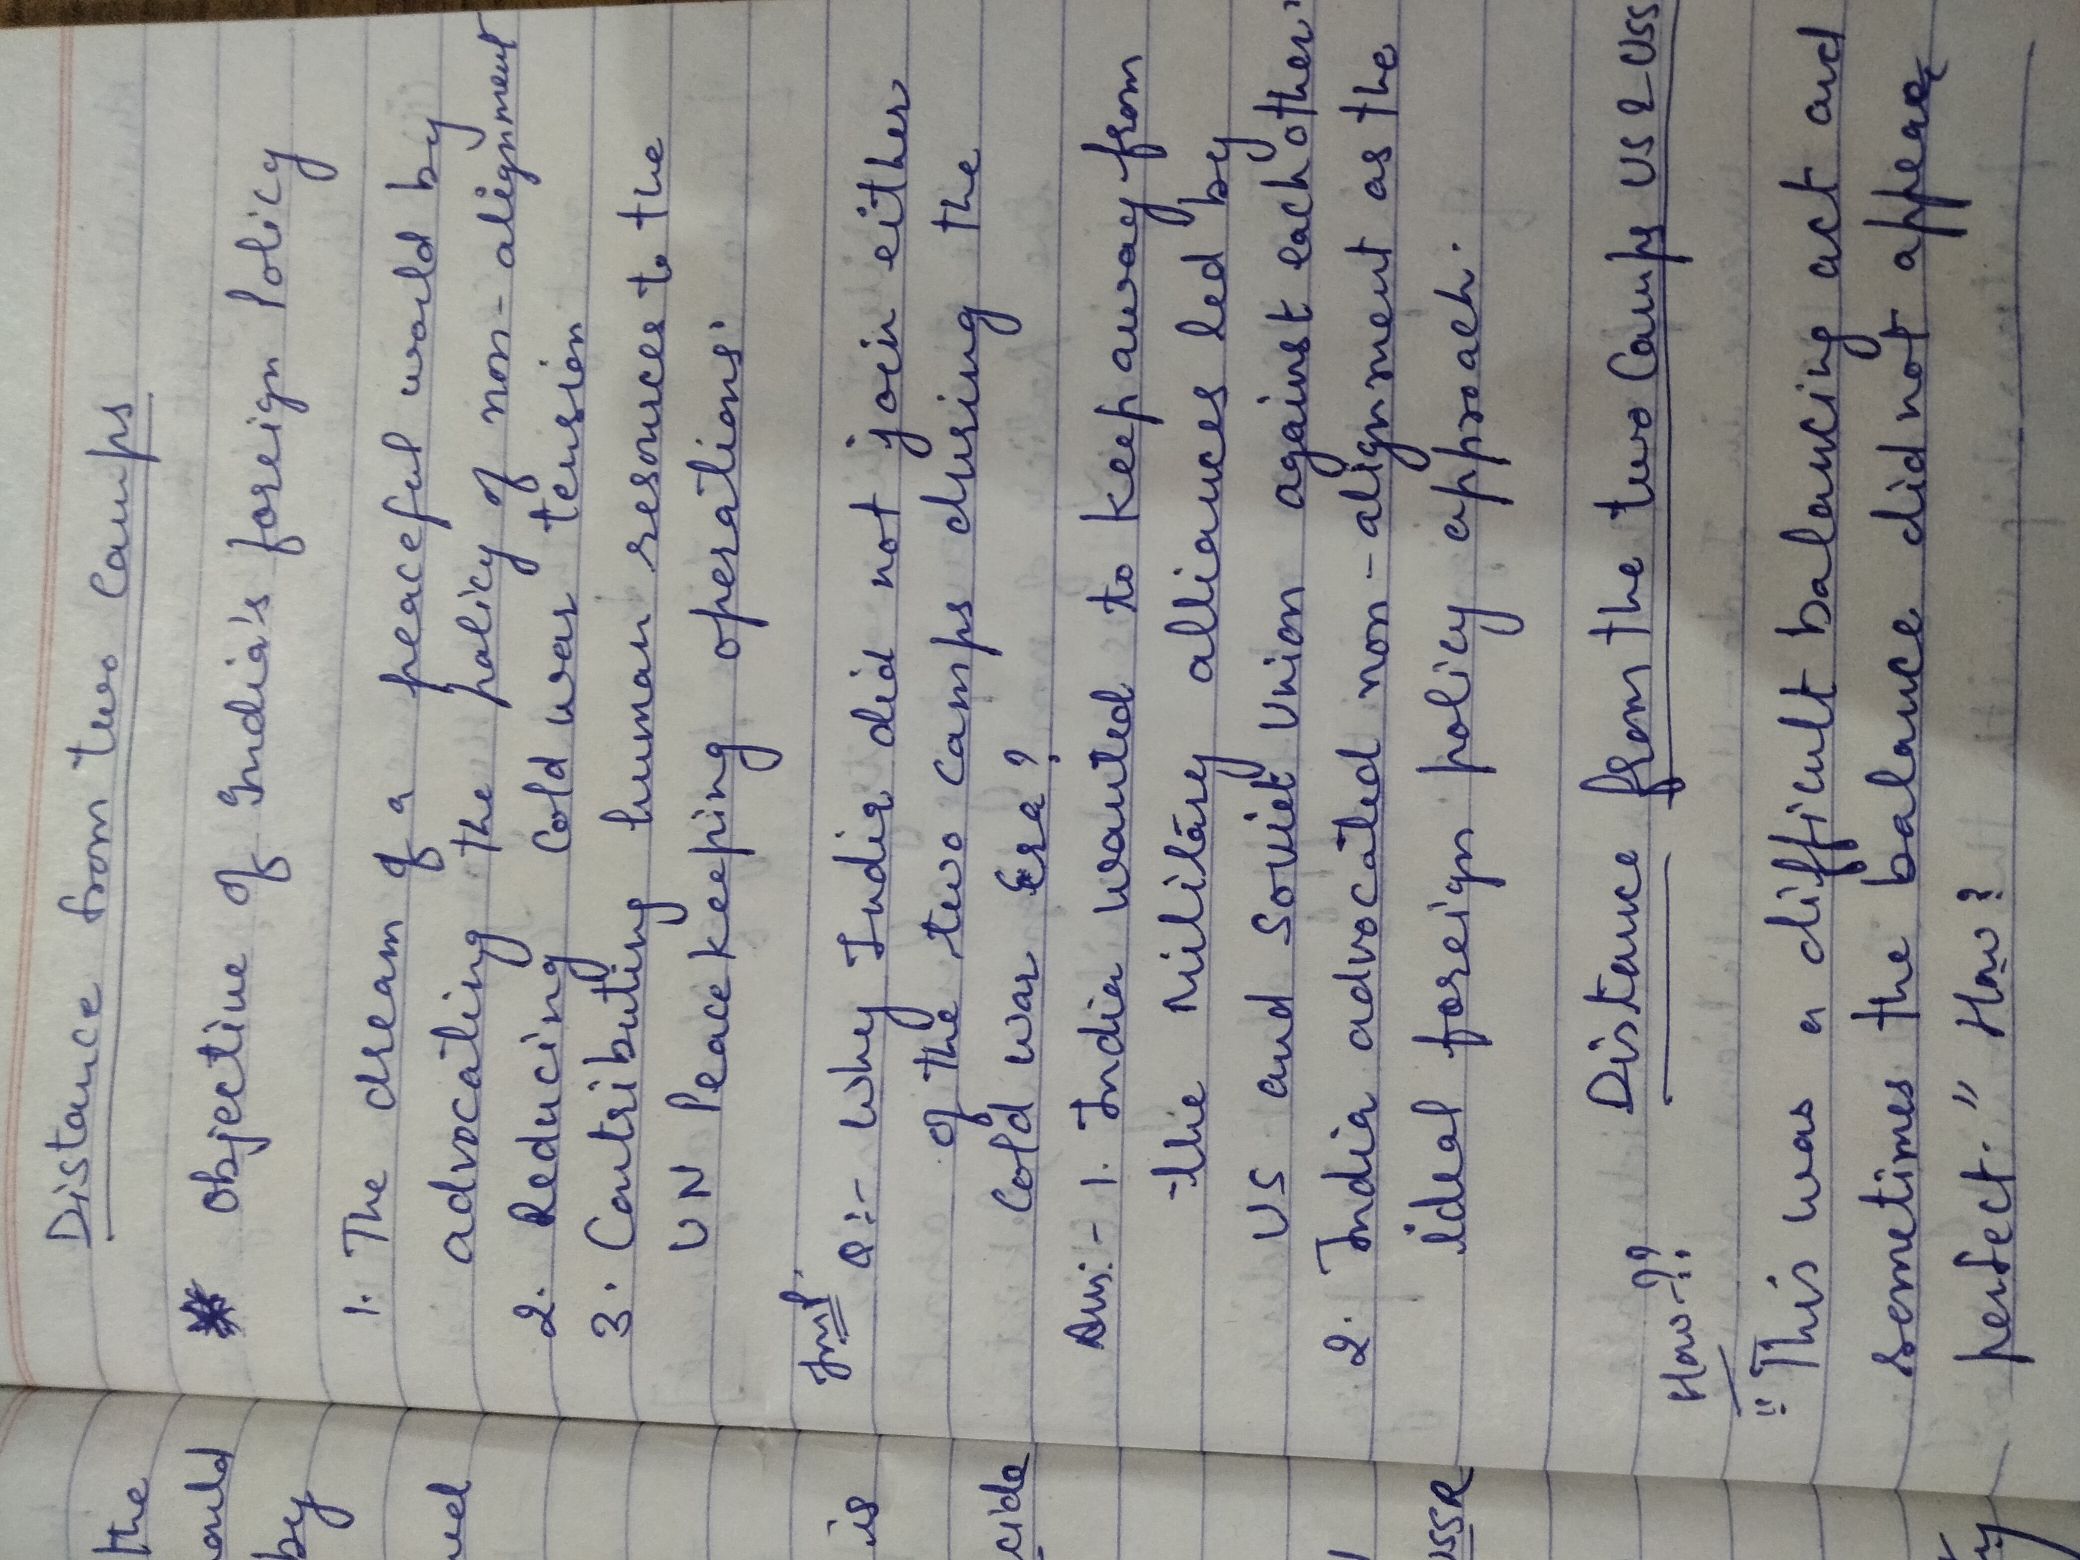 Distance from two Camps
* Objective of India's foreign Policy
1. The dream of a peaceful world by
advocating the policy of non-alignment
2. Reducing Cold war tension
3. Contributing human resources to the
UN Peacekeeping operations.
Imp. Q:- Why India did not join either
of the two camps during the
Cold war Era?
Ans:- 1. India wanted to keep away from
the military alliances led by
US and Soviet Union against each other.
2. India advocated non-alignment as the
ideal foreign policy approach.
Distance from the two Camps US & USS
How-??
"This was a difficult balancing act and
sometimes the balance did not appear
perfect." How?
the
ould
by
uel
is
cide
USSR
ty